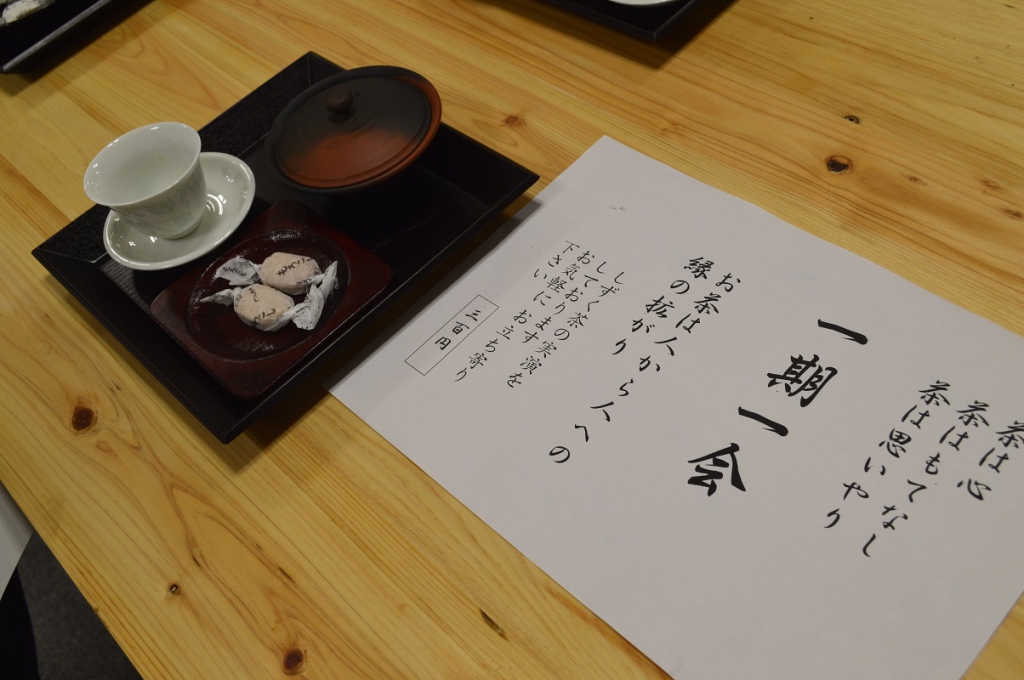 茶は心
茶はもてなし
茶は思いやり
一期一会
お茶は人から人への
縁の拡がり
しずく茶の実演を
しております
お気軽にお立ち寄り
下さい
三百円